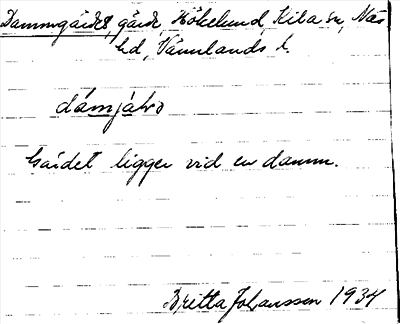 Dammgärdet, gärde, Hökelund, Kila sn, Näs
hd, Värmlands l.
dámjạḷrə
Gärdet ligger vid en damm.
Britta Johansson 1934